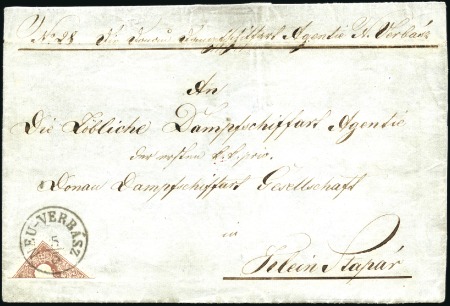 No 28. Die Donau Dampfschiffart Agentie N. Verbász
An
Die Löbliche Dampfschiffart Agentie
der ersten k. k. priv.
Donau Dampfschiffart Gesellschaft
in
Klein Stapár
NEU-VERBÁSZ
5